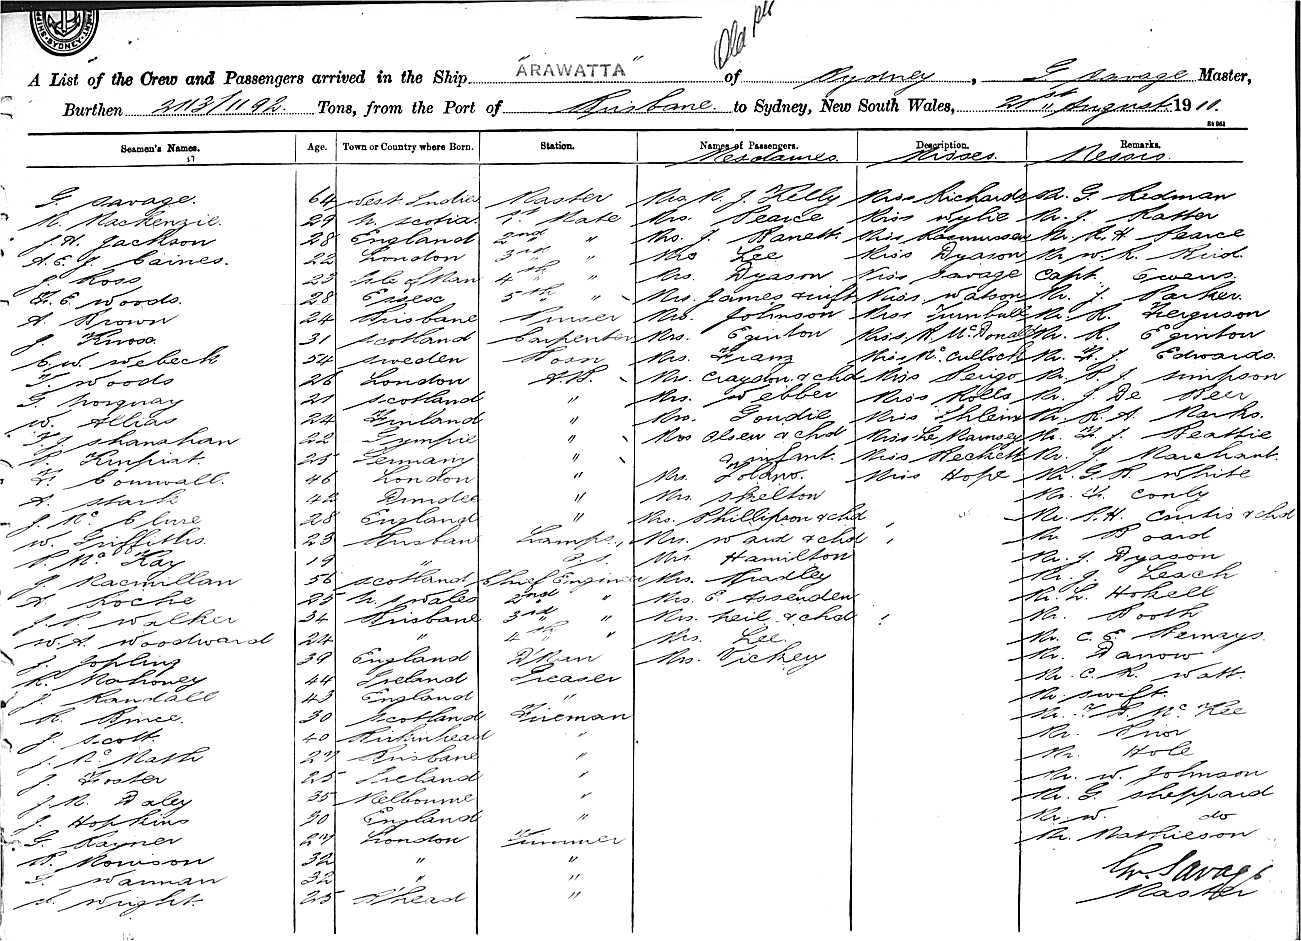 SYDNEY
Old
A List of the Crew and Passengers arrived in the Ship "ARAWATTA" of Sydney, G Savage Master,
Burthen 2113/1192 Tons, from the Port of Brisbane to Sydney, New South Wales, 21st August 1911.
Seamen's Names. Age. Town or Country where Born. Station. Names of Passengers. Description. Remarks.
37 Mesdames. Misses. Messrs.
G. Savage. 64 West Indies Master Mrs M. J. Kelly Miss Richards Mr. G. Redman
M. Mackenzie. 29 N. Scotia. 1st Mate Mrs. Pearce Miss Wylie Mr. J. Ratter
J. H. Jackson 28 England 2nd " Mrs. J. Miss Rasmussen Mr. R. H. Pearce
A. E. J. Caines. 22 London 3rd " Mrs Lee Miss Dyason Mr W. R. Reid.
J. Ross 23 Isle of Man 4th " Mrs. Dyason Miss Savage Capt. Ewens.
H. E. Woods. 28 Essex 5th " Mrs. James & inft Miss Watson Mr. J. Parker.
A. Brown 24 Brisbane Purser Mrs. Johnson Miss Turnbull Mr. R. Ferguson
J. Knox 31 Scotland Carpenter Mrs. Eginton Miss. A. McDonald Mr. R. Eginton
C. W. Webeck 54 Sweden Bosn Mrs. Franz Miss McCulloch Mr. H. J. Edwards.
F. Woods 26 London A.B. Mrs. Craydon & chd Miss Perigo Mr. P. J. Simpson
G. Torquay 21 Scotland " Mrs. Webber Miss Rolls Mr. J. De Beer
W. Allias 24 Finland " Mrs. Goudie Miss Ihlein Mr. R. A. Marks.
T. J. Shanahan 22 Gympie " Mrs Olsen & chd Miss Le Ramsey Mr. H. J. Beattie
P. 25 Germany " & infant. Miss Beckett Mr. J. Marchant.
F. Cornwall. 46 London " Mrs. Toland. Miss Hope Mr. G. R. White
A. Stark 42 Dundee " Mrs. Skelton Mr. H. Conly
J. McClure 28 England " Mrs. Phillipson & chd Mr. P. H. Curtis & chd
W. Griffiths 23 Brisbane Lamps. Mrs. Ward & chd Mr. Board
P. McKay 19 " O.S. Mrs. Hamilton Mr. J. Dyason
J. Macmillan 56 Scotland Chief Engineer Mrs. Bradley Mr. J. Leach
A. Loche 25 N. S. Wales 2nd " Mrs. E. Assenden Mr. L. Hokell
J. P. Walker 34 Brisbane 3rd " Mrs. Neil & chd Mr. Booth
W. A. Woodward 24 " 4th " Mrs. Lee Mr. C. E. Kemays.
J. Jopling 39 England D'Man Mrs. Vickey Mr. Darrow
R. Mahoney 44 Ireland Greaser Mr. C. R. Watt.
J. Randall 43 England " Mr. Swift.
R. Bruce. 30 Scotland Fireman Mr. T. S. McKee
J. Scott. 40 Birkinhead " Mr. Prior
J. McMath 27 Brisbane " Mr. Hole
J. Foster 25 Ireland " Mr. W. Johnson
J. M. Daley 35 Melbourne " Mr. G. Sheppard
J. Hopkins 30 England " Mr. W. do
G. Rayner 27 London Trimmer Mr. Mathieson
W. Morrison 32 " "
G. Wannan 32 " " G Savage
J. Wright. 25 B'head " Master